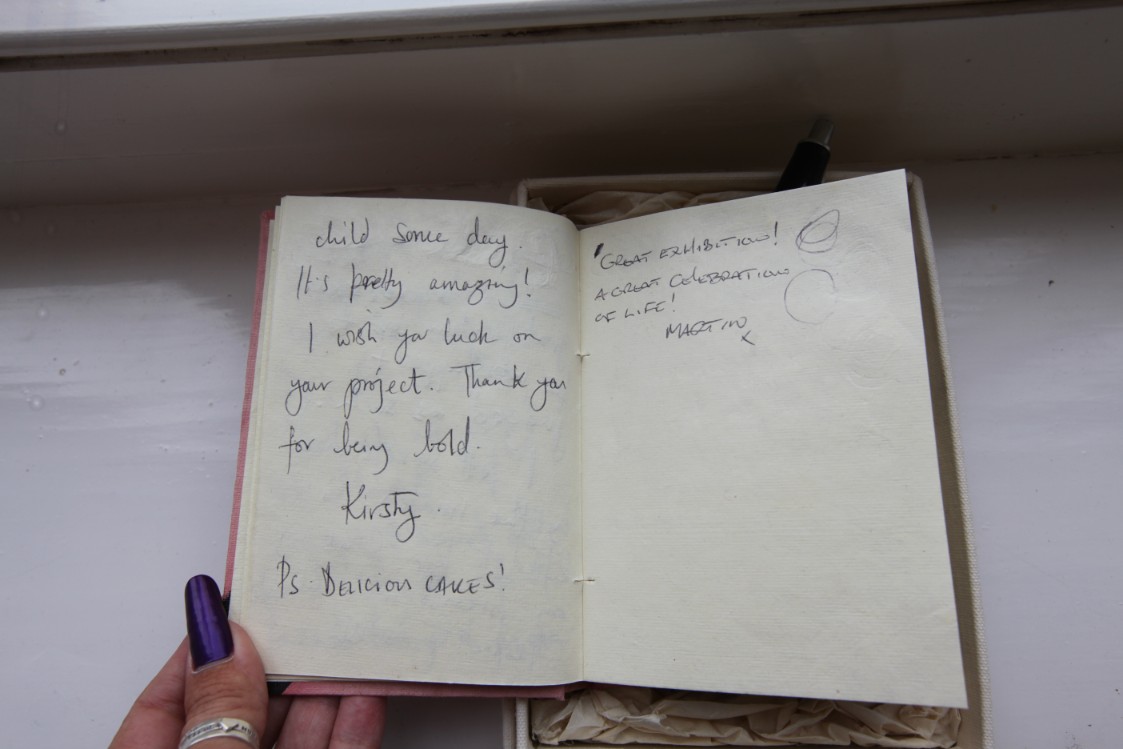 child some day.
It's pretty amazing!
I wish you luck on
your project. Thank you
for being bold.
Kirsty.
Ps. DELICIOUS CAKES!
'GREAT EXHIBITION!
A GREAT CELEBRATION
OF LIFE!
MARTIN
x